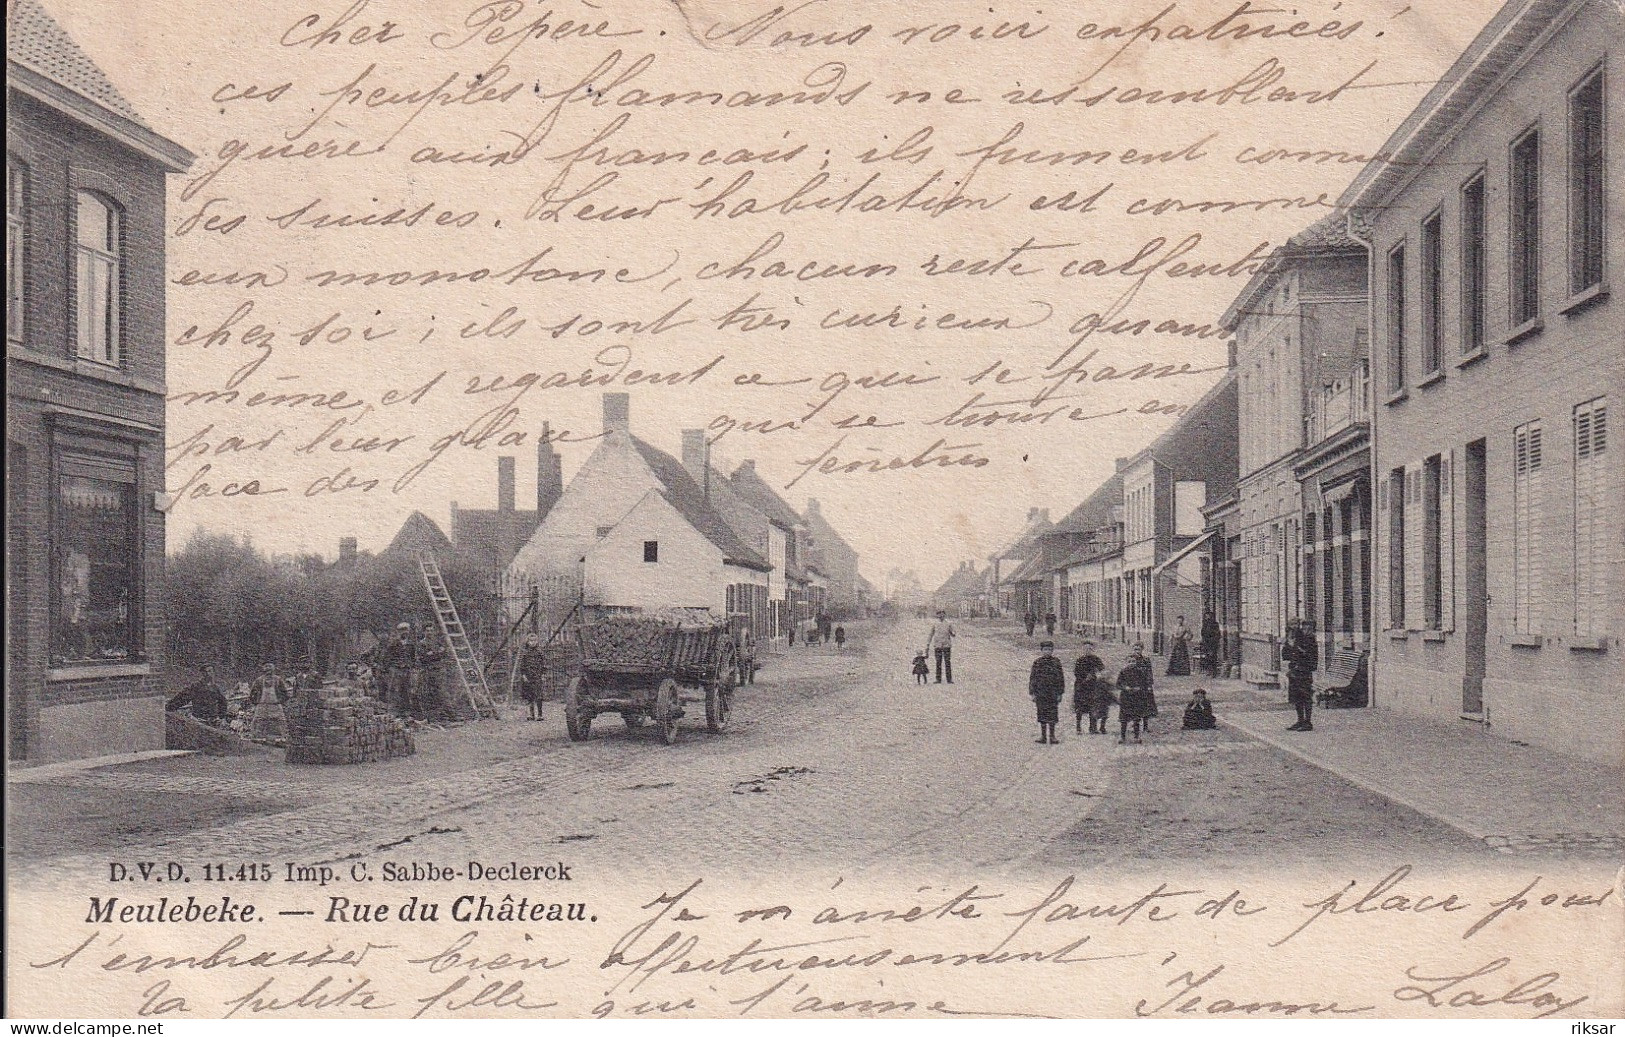 Cher Pépère. Nous voici expatriées!
ces peuples flamands ne ressemblent
guère aux français; ils fument comme
des suisses. Leur habitation est comme
eux monotone, chacun reste calfeutré
chez soi; ils sont très curieux quand
même, et regardent ce qui se passe
par leur glace qui se trouve en
face des fenêtres.
D.V.D. 11.415 Imp. C. Sabbe-Declerck
Meulebeke. — Rue du Château.
Je m'arrête faute de place pour
t'embrasser bien affectueusement.
Ta petite fille qui t'aime Jeanne Laloy
delcampe.net
riksar